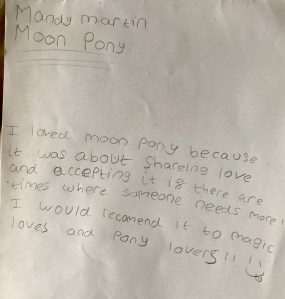 Mandy martin
Moon Pony
I loved moon pony because
it was about shareing love
and accepting it if there are
times where someone needs more!
I would recomend it to magic
loves and pony lovers!! !!